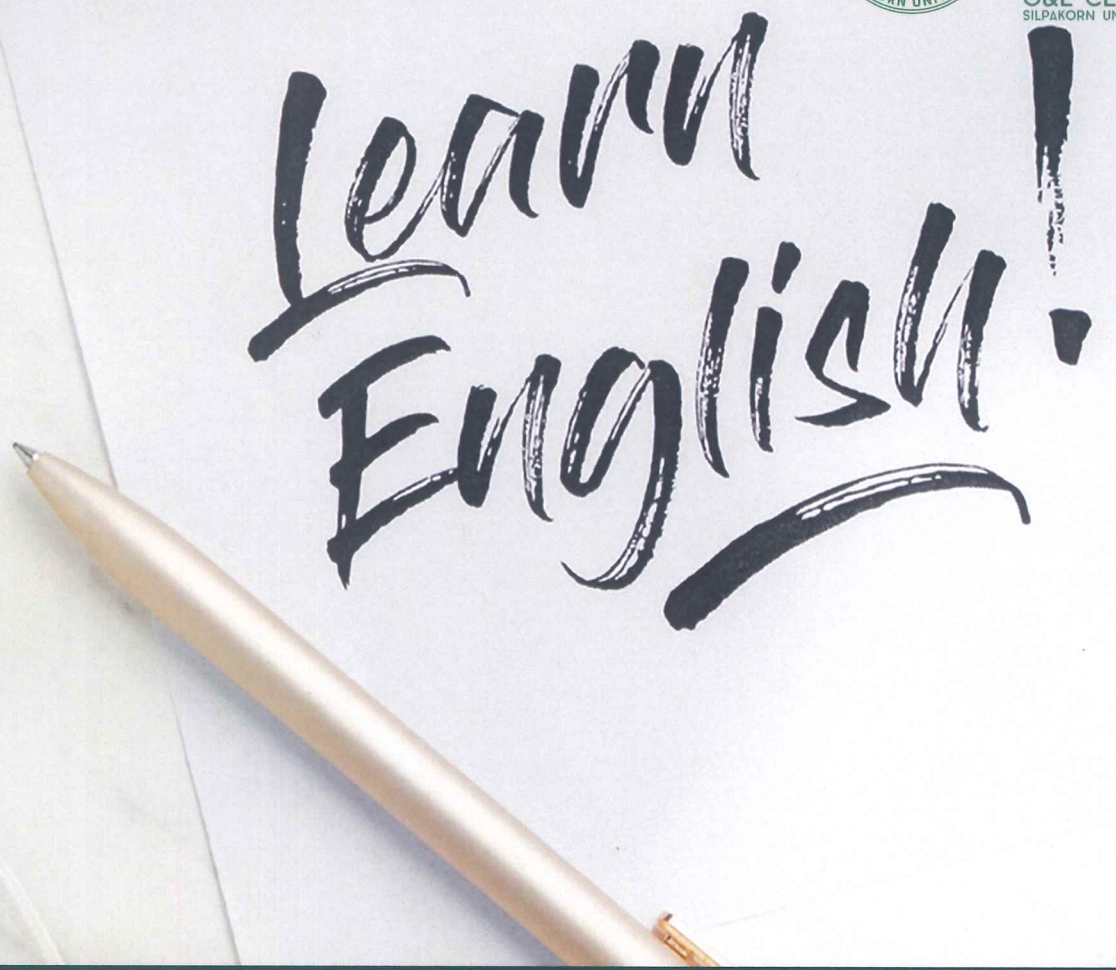 SILPAKORN
Learn
English!